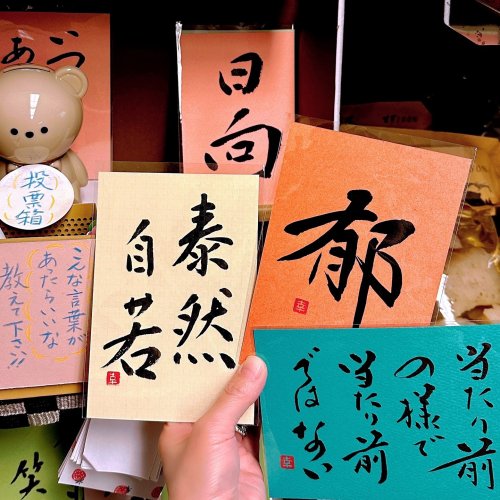 日向
投票箱
こんな言葉が
あったらいいな
教えて下さい!!
泰然
自若
郁
当たり前
の様で
当たり前
ではない
笑
幸
幸
幸